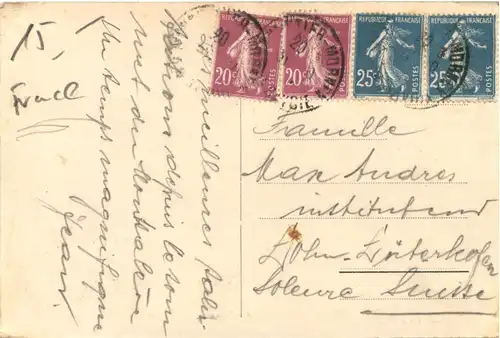 15,
RÉPUBLIQUE FRANÇAISE
20c POSTES
FRANÇAISE
20c POSTES
RÉPUBLIQUE FRANÇAISE
25c POSTES
RÉPUBLIQUE FRANÇAISE
25c POSTES
Les meilleures salu-
tations depuis le som
met du
Un temps magnifique
Jean.
Famille
Max Andres
instituteur
Lohn-Lüterkofen
Soleure Suisse